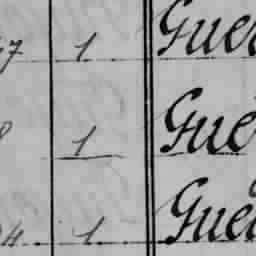 7 1 Gue
8 1 Gue
4 1 Gue